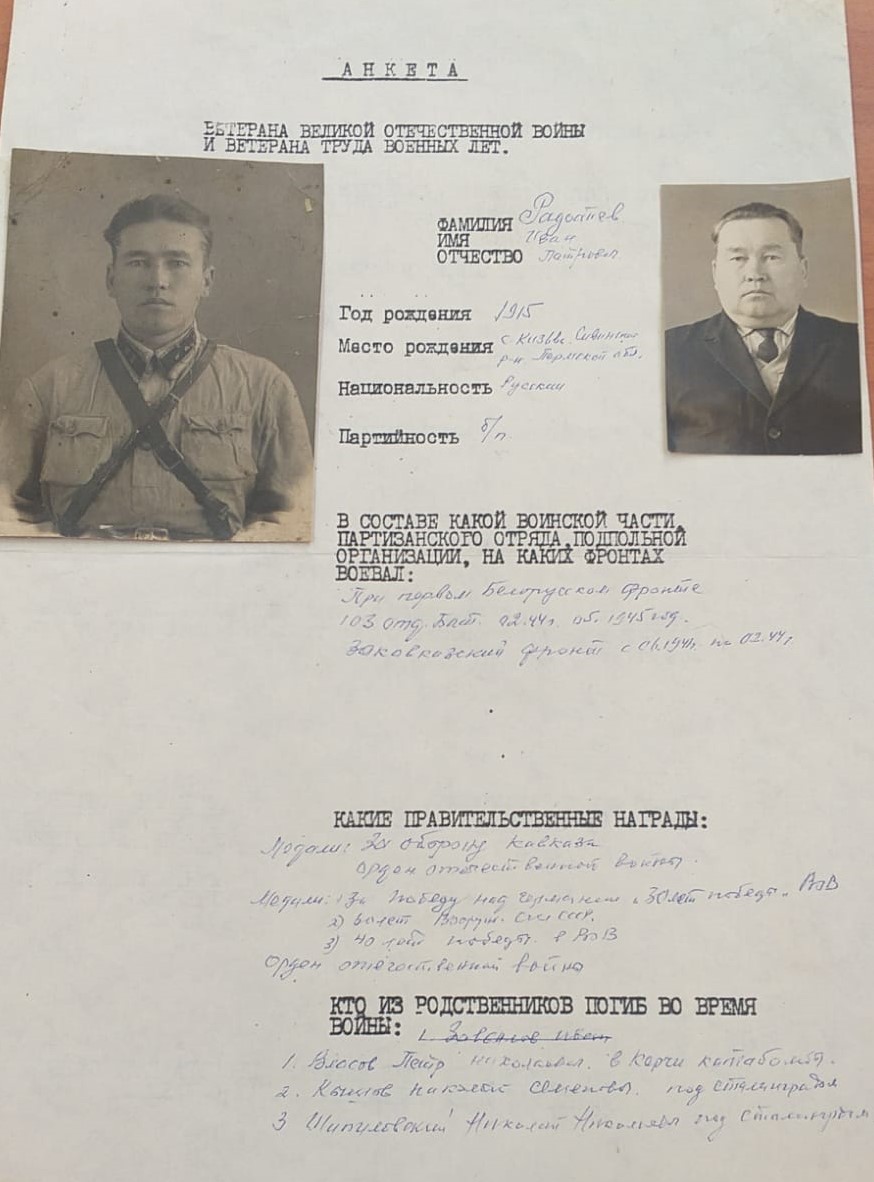 АНКЕТА
ВЕТЕРАНА ВЕЛИКОЙ ОТЕЧЕСТВЕННОЙ ВОЙНЫ
И ВЕТЕРАНА ТРУДА ВОЕННЫХ ЛЕТ.
ФАМИЛИЯ
ИМЯ Иван
ОТЧЕСТВО Петрович
Год рождения 1915
Место рождения с. Кизьва Сивинский
р-н. Пермской обл.
Национальность Русский
Партийность б/п.
В СОСТАВЕ КАКОЙ ВОИНСКОЙ ЧАСТИ,
ПАРТИЗАНСКОГО ОТРЯДА,ПОДПОЛЬНОЙ
ОРГАНИЗАЦИИ, НА КАКИХ ФРОНТАХ
ВОЕВАЛ:
При первом Белорусском фронте
103 отд. Бат. 02.44г. 1945 год.
Закавказский фронт с по 02.44г
КАКИЕ ПРАВИТЕЛЬСТВЕННЫЕ НАГРАДЫ:
Медали: За оборону Кавказа
Орден отечественной войны.
Медали: За Победу над германией 30 лет победы в ВОВ
2) лет Вооруж. сил СССР.
3) 40 лет победы в ВОВ
Орден отечественной войны
КТО ИЗ РОДСТВЕННИКОВ ПОГИБ ВО ВРЕМЯ
ВОЙНЫ: 1.
1. Власов Петр Николаевич в Керчи
2. Николай Семенович под Сталинградом
3 Шипиловский Николай Николаевич под Сталинградом